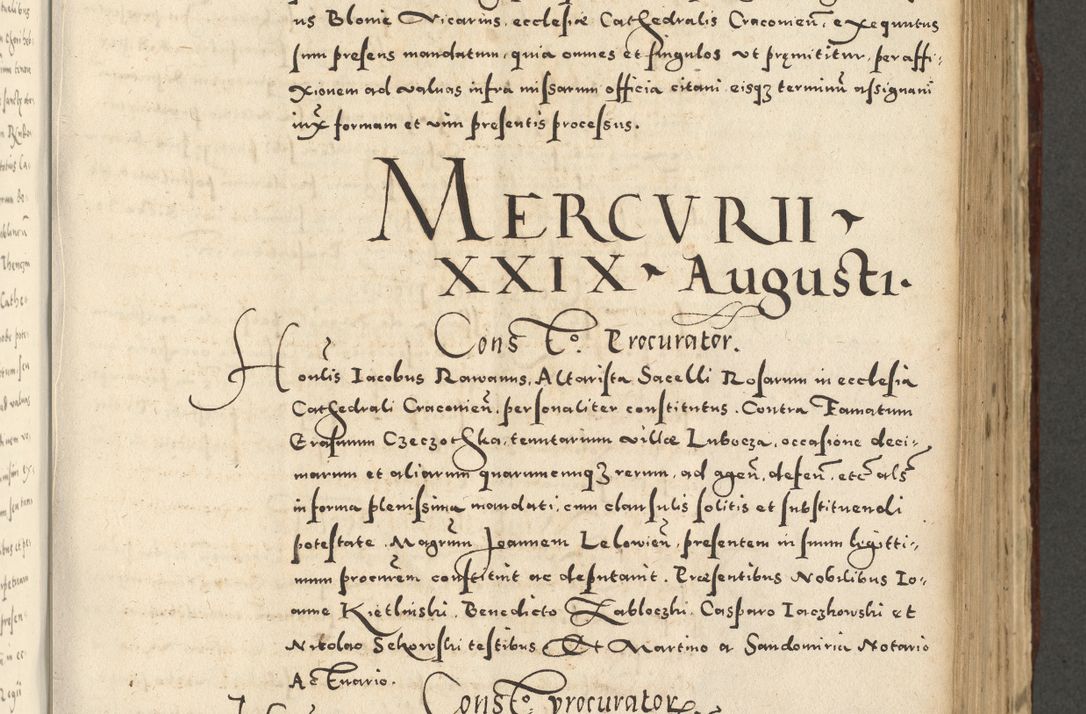 us Blonie Vicarius, ecclesiæ Cathedralis Cracovień, exequutus
sum presens mandatum, quia omnes et singulos ut pręmititur, per affi-
xionem ad valvas infra missarum officia citavi, eisqꝫ terminũ assignavi
iux̃ formam et vim presentis processus.
MERCVRII
XXIX Augusti.
Cons tº. Procurator.
Honlis Iacobus Rawanus, Altarista Sacelli Rosarum in ecclesia
Cathedrali Cracovień, personaliter constitutus. Contra Famatum
Erasmum Czeczothka, tenutarium villæ Lubocza, occasione deci-
marum et aliarum quarumcumqꝫ rerum, ad ageń, defeń, etc als
in forma plenissima mandati, cum clausulis solitis et substituendi
potestate, Magrũm Joannem Lelowień, presentem in suum legitti-
mum procurem constituit ac deputavit. Præsentibus Nobilibus Io-
anne Kietlinski, Benedicto Zabloczki, Casparo Iaczkowski et
Nicolao Sekowski testibus Et Martino a Sandomiria Notario
Actuario.
Const º. procurator